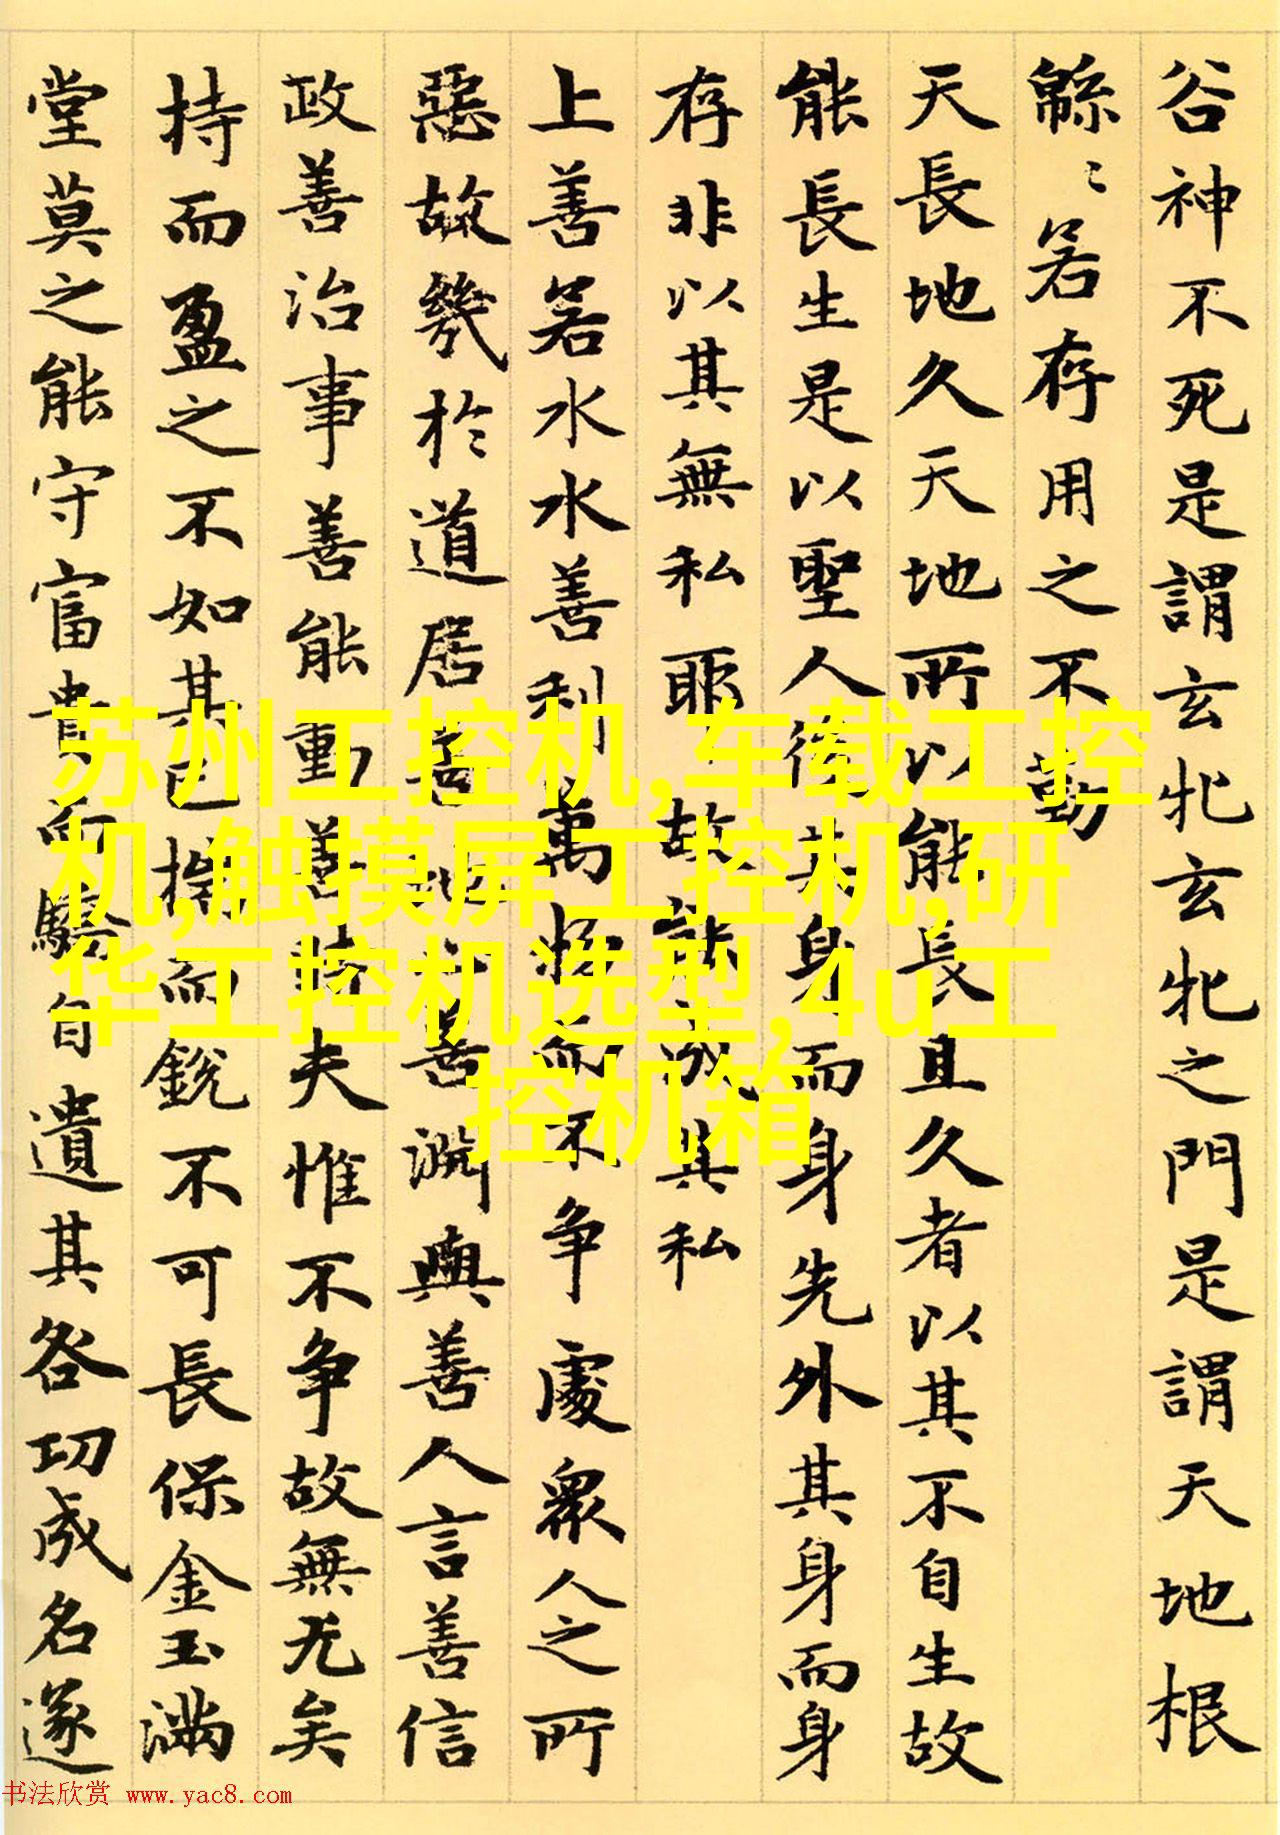 谷神不死是謂玄牝玄牝之門是謂天地根
緜〻若存用之不勤
天長地久天地所以能長且久者以其不自生故
能長生是以聖人後其身而身先外其身而身
存非以其無私耶故能成其私
上善若水水善利萬物而不争處衆人之所
惡故幾於道居善地心善淵與善人言善信
政善治事善能動善時夫惟不争故無尤矣
持而盈之不如其已揣而銳不可長保金玉滿
堂莫之能守富貴而驕自遺其咎功成名遂
苏州工控机,车载工控
机,触摸屏工控机,研
华工控机选型,4u工
控机箱
书法欣赏 www.yac8.com